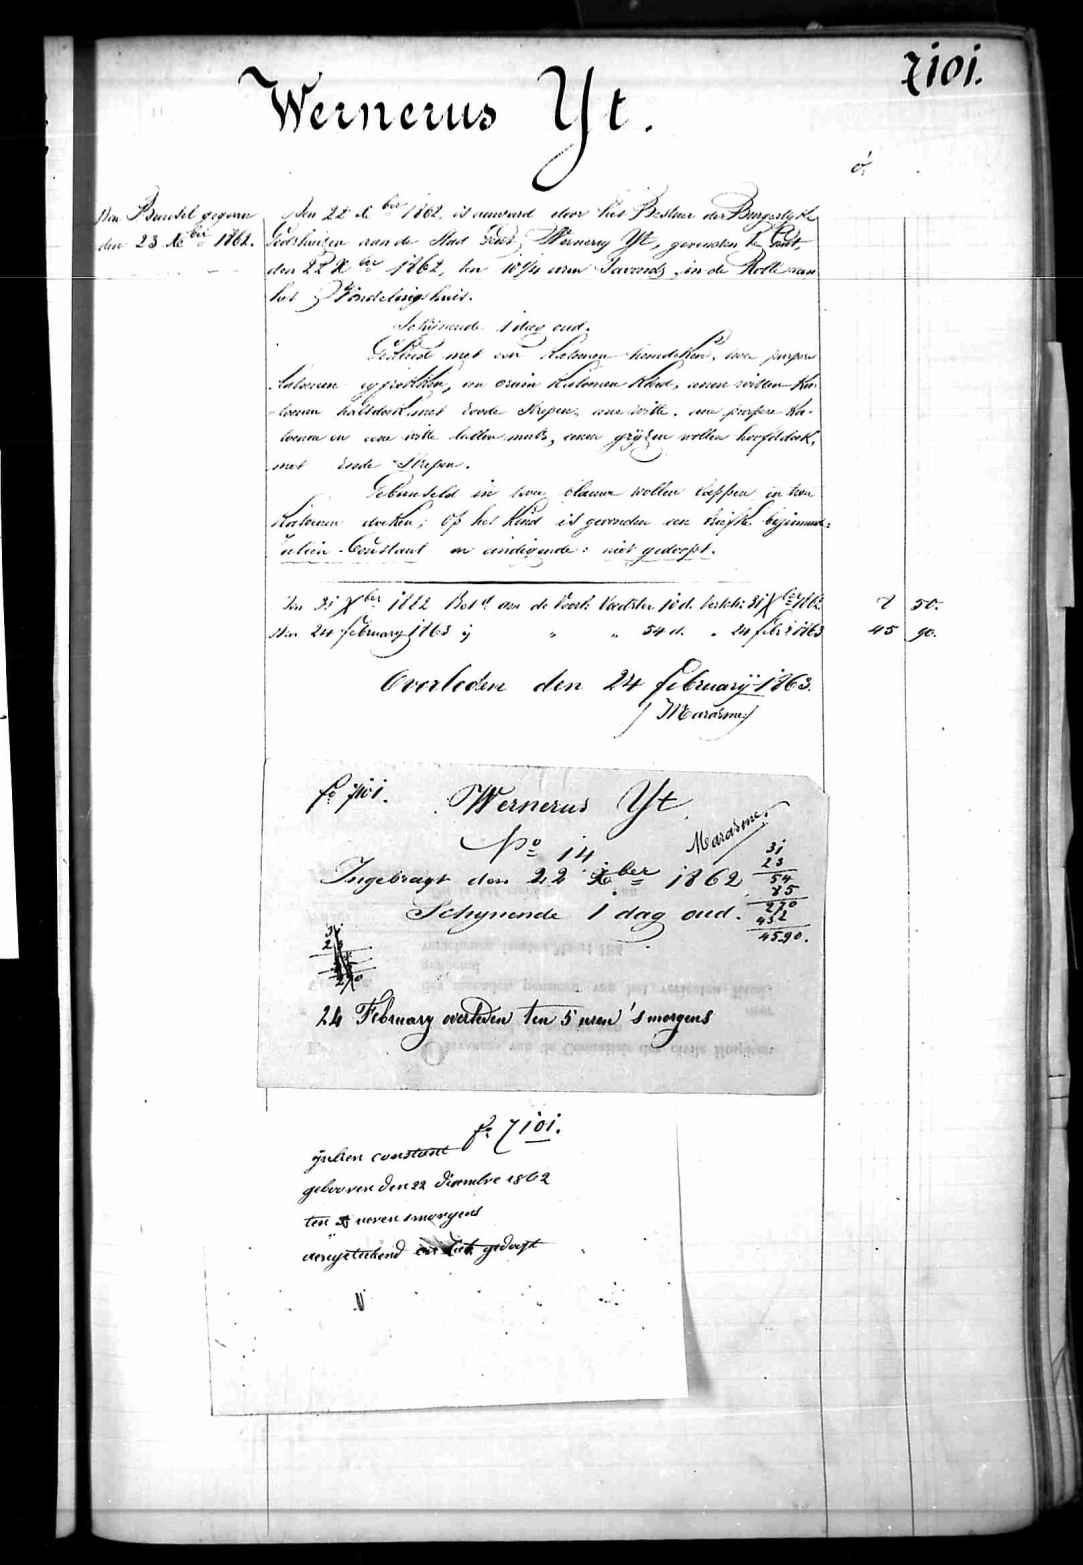 7101.
Wernerus Yt.
Den Bundel gegeven
den 23 Xber 1862.
Den 22 Xber 1862, is aanveerd door het Bestuur der Burgerlyke
Godshuizen van de Stad Gent, Wernerus Yt, gevonden te Gent,
den 22 Xber 1862, ten 10 1/4 uren 's avonds, in de Rolle van
het Vondelingshuis.
Schijnende 1 dag oud.
Gekleed met een katoenen hemdeken, twee purpere
katoenen, een bruin katoenen kleed, eenen witten ka-
toenen halsdoek met roode strepen, eene witte, eene purpere ka-
toenen en eene witte tullen muts, eenen gryzen wollen hoofddoek,
met roode strepen.
Gebundeld in twee blauwe wollen lappen en twee
katoenen doeken; Op het kind is gevonden een briefke beginnende:
Julien Constant en eindigende: niet gedoopt.
Den 31 Xber 1862 Bet. aan de Voedster 10 d. 31 Xber 1862 8 50.
Den 24 February 1863 ij " " 54 d. " 24 febr. 1863 45 90.
Overleden den 24 february 1863.
(Marasme)
fo 7101.
Wernerus Yt
No 14
Marasme.
Ingebragt den 22 Xber 1862
Schynende 1 dag oud.
31
23
54
85
270
432
45,90.
24 February overleden ten 5 uren 's morgens
fo 7101.
julien constant
gebooren den 22 diecembre 1862
ten ueren smorgens
aengeteekend niet gedoopt